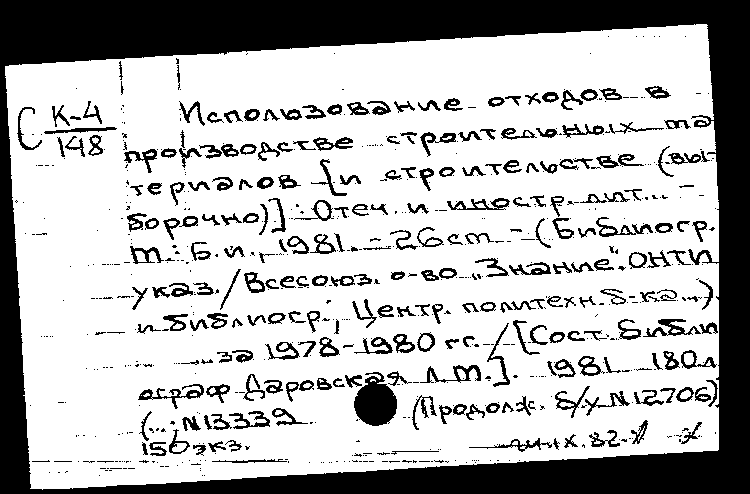 С К-4
148
Использование отходов в
производстве строительных ма
териалов [и строительстве (вы-
борочно)] : Отеч. и иностр. лит... -
М.: Б.и., 1981. - 26 см - (Библиогр.
указ. / Всесоюз. о-во „Знание". ОНТИ
и библиогр.; Центр. политехн. б-ка...).
...за 1978-1980 гг. / [Сост. библи
ограф Даровская Л.М.]. 1981 180 л
(...; N13339 (Продолж. б/у N12706)
150 экз.
IX.82